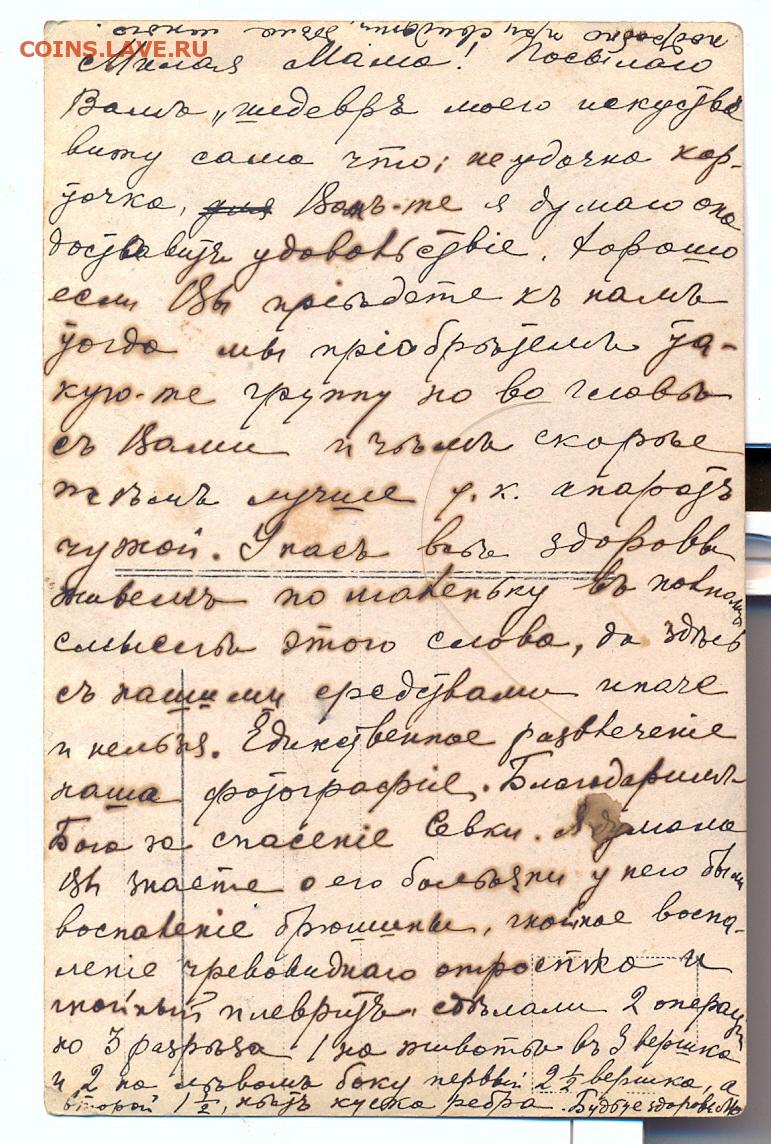 COINS.LAVE.RU
подробно при свиданіи,
Милая Мама! Посылаю
Вамъ „шедевръ моего искуства
вижу сама что неудачна кар-
точка, для Вамъ-же я думаю она
доставитъ удовольствіе. Хорошо
если Вы пріѣдете къ намъ
тогда мы пріобрѣтемъ та-
кую-же группу но во главѣ
съ Вами и чѣмъ скорѣе
тѣмъ лучше т.к. апаратъ
чужой. У насъ всѣ здоровы
живемъ по маленьку въ полномъ
смыслѣ этого слова, да здѣсь
съ нашими средствами иначе
и нельзя. Единственное развлеченіе
наша фотографіе. Благодаримъ
Бога за спасеніе Севки. Я думала
Вы знаете о его болѣзни у него были
воспаленіе брюшины, гнойное воспа-
леніе червовиднаго отростка и
гнойный плевритъ. сдѣлали 2 операціи
но 3 разрѣза 1 на животѣ въ 3 вершка
и 2 на лѣвомъ боку первый 2 ½ вершка, а
второй 1 ½, куска ребра. Будьте здоровы